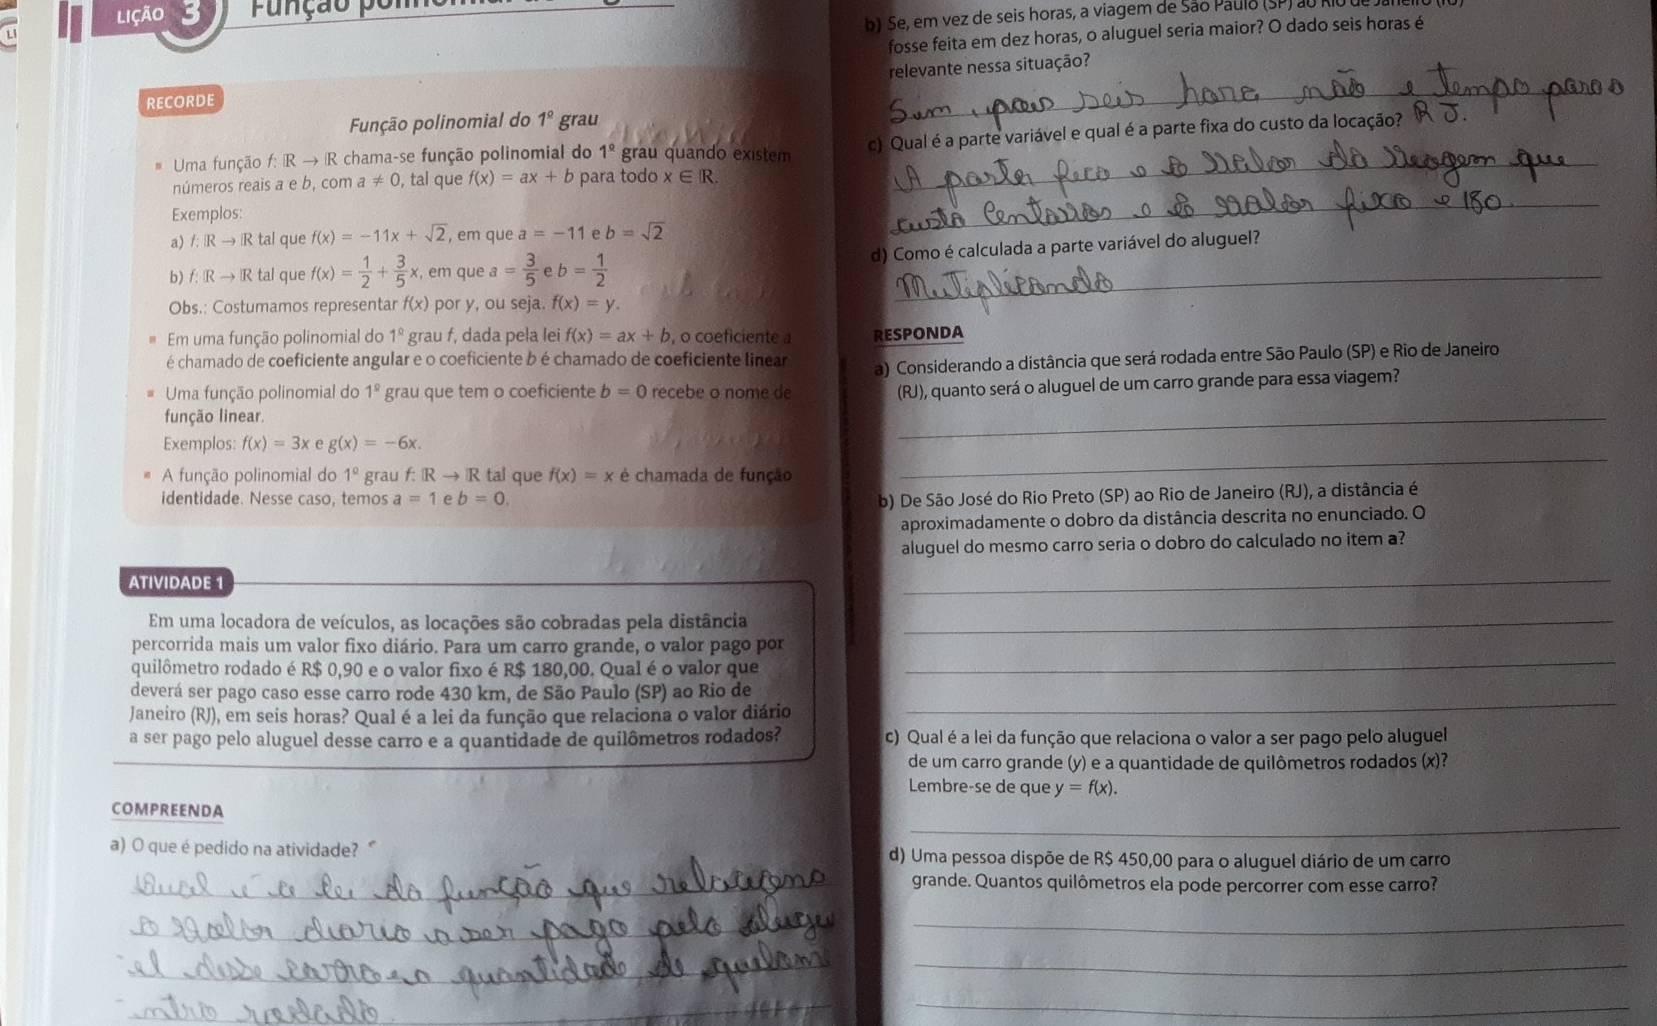 LIÇÃO 3
RECORDE
Função polinomial do 1º grau
▪ Uma função f: ℝ → ℝ chama-se função polinomial do 1º grau quando existem
números reais a e b, com a ≠ 0, tal que f(x) = ax + b para todo x ∈ ℝ.
Exemplos:
a) f: ℝ → ℝ tal que f(x) = −11x + √2, em que a = −11 e b = √2
b) f: ℝ → ℝ tal que f(x) = 1/2 + 3/5 x, em que a = 3/5 e b = 1/2
Obs.: Costumamos representar f(x) por y, ou seja. f(x) = y.
▪ Em uma função polinomial do 1º grau f, dada pela lei f(x) = ax + b, o coeficiente a
é chamado de coeficiente angular e o coeficiente b é chamado de coeficiente linear
▪ Uma função polinomial do 1º grau que tem o coeficiente b = 0 recebe o nome de
função linear.
Exemplos: f(x) = 3x e g(x) = −6x.
▪ A função polinomial do 1º grau f: ℝ → ℝ tal que f(x) = x é chamada de função
identidade. Nesse caso, temos a = 1 e b = 0.
ATIVIDADE 1
Em uma locadora de veículos, as locações são cobradas pela distância
percorrida mais um valor fixo diário. Para um carro grande, o valor pago por
quilômetro rodado é R$ 0,90 e o valor fixo é R$ 180,00. Qual é o valor que
deverá ser pago caso esse carro rode 430 km, de São Paulo (SP) ao Rio de
Janeiro (RJ), em seis horas? Qual é a lei da função que relaciona o valor diário
a ser pago pelo aluguel desse carro e a quantidade de quilômetros rodados?
COMPREENDA
a) O que é pedido na atividade?
Qual é a lei da função que relaciona
o valor diario a ser pago pelo alugu
el desse carro e a quantidade de quilom
intrio rodado.
b) Se, em vez de seis horas, a viagem de São Paulo (SP) ao Rio de Janeiro (RJ)
fosse feita em dez horas, o aluguel seria maior? O dado seis horas é
relevante nessa situação?
Sim, pois seis hora não e tempo para o
R J.
c) Qual é a parte variável e qual é a parte fixa do custo da locação?
A parte fico e o valor da viagem que
custa Centavos e o valor fixo e 180.
d) Como é calculada a parte variável do aluguel?
Mutiplicando
RESPONDA
a) Considerando a distância que será rodada entre São Paulo (SP) e Rio de Janeiro
(RJ), quanto será o aluguel de um carro grande para essa viagem?
b) De São José do Rio Preto (SP) ao Rio de Janeiro (RJ), a distância é
aproximadamente o dobro da distância descrita no enunciado. O
aluguel do mesmo carro seria o dobro do calculado no item a?
c) Qual é a lei da função que relaciona o valor a ser pago pelo aluguel
de um carro grande (y) e a quantidade de quilômetros rodados (x)?
Lembre-se de que y = f(x).
d) Uma pessoa dispõe de R$ 450,00 para o aluguel diário de um carro
grande. Quantos quilômetros ela pode percorrer com esse carro?